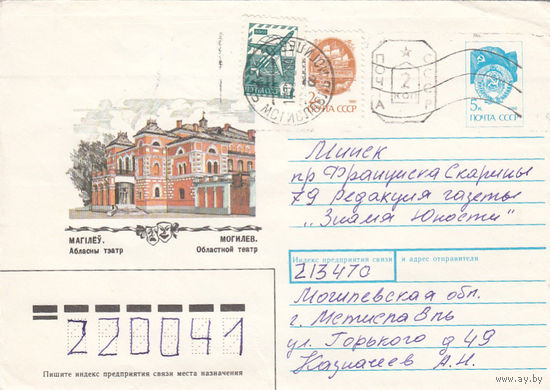 ПОЧТА СССР
ПОЧТА СССР
ПОЧТА
2
коп
СССР
5к
ПОЧТА СССР
Минск
пр Франциска Скарины
79 Редакция газеты
"Знамя Юности"
МАГІЛЁЎ.
Абласны тэатр
МОГИЛЕВ.
Областной театр
Индекс предприятия связи и адрес отправителя
213470
Могилевская обл.
г. Мстиславль
ул. Горького д 49
Казначеев А.Н.
220041
Пишите индекс предприятия связи места назначения
www.ay.by